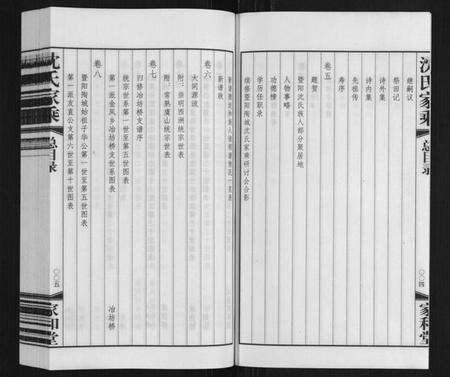 沈氏家乘
总目录
〇〇四
家和堂
继嗣议
祭田记
诗外集
诗内集
先祖传
寿序
卷五
题赞
暨阳沈氏族人部分聚居地
人物事略
功德榜
学历任职录
续修暨阳陶城沈氏家乘研讨会合影
卷六
新谱跋
大同源流
附：崇明西洲统宗世表
附：常熟虞山统宗世表
卷七
四修冶坊桥支谱序
统宗世系第一世至第五世图表
第一派金凤乡冶坊桥支世系图表
冶坊桥
卷八
暨阳陶城始祖子和公第一世至第五世图表
第一派友直公支第六世至第十世图表
沈氏家乘
总目录
〇〇五
家和堂